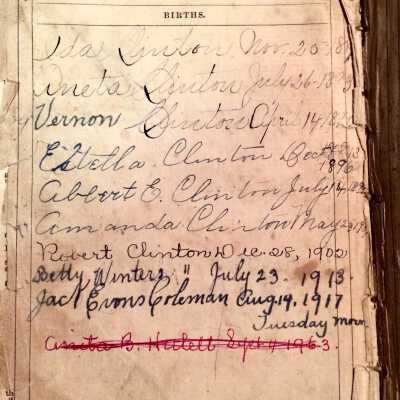 BIRTHS.
Ida Clinton Nov. 20
Aneta Clinton July 26
Vernon Clinton Apri 14
Estella Clinton Dec
1896
Albert E. Clinton July 14
Amanda Clinton May
Robert Clinton Dec. 28, 1902
Betty Winters " July 23. 1913.
Jack Evons Coleman Aug 14, 1917
Tuesday morn
Anita B. Hulett Sept 4 1963.